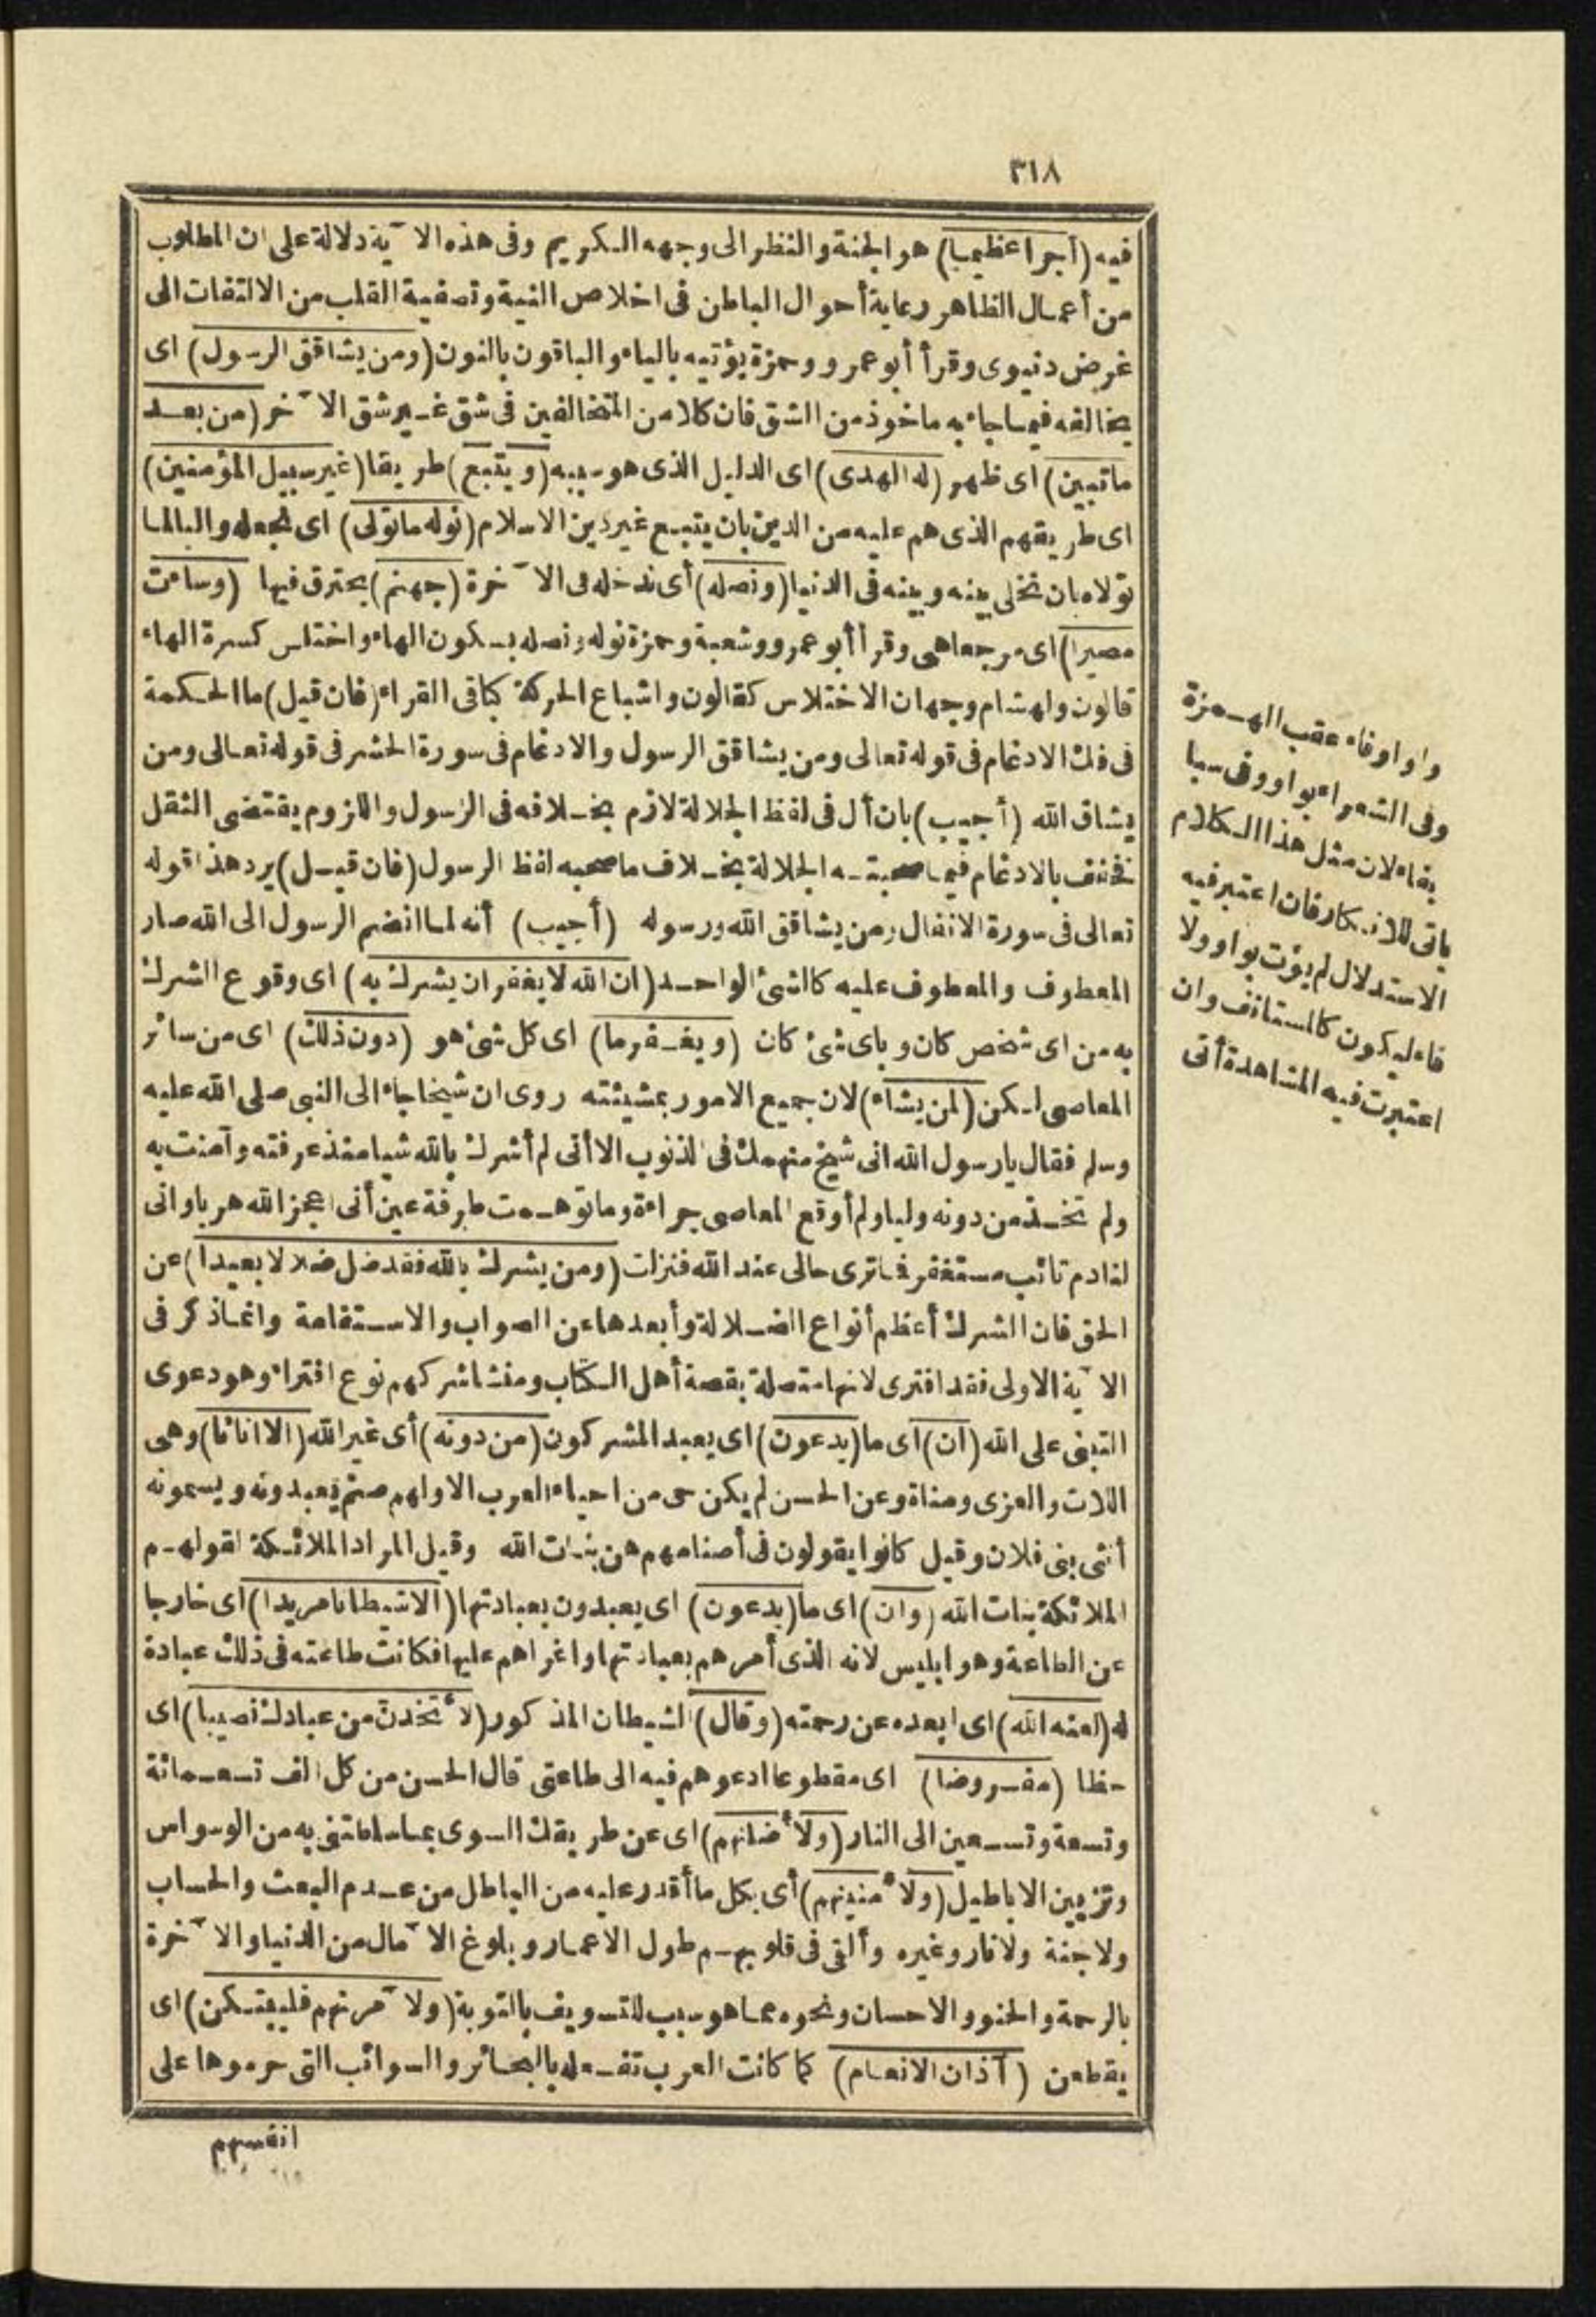 ٣١٨
فيه (أجرا عظيما) هو الجنة والنظر الى وجهه الكريم وفى هذه الآية دلالة على ان المطلوب
من أعمال الظاهر رعاية أحوال الباطن فى اخلاص النية وتصفية القلب من الالتفات الى
غرض دنيوى وقرأ أبو عمرو وحمزة يؤتيه بالياء والباقون بالنون (ومن يشاقق الرسول) اى
يخالفه فيما جاء به ماخوذ من الشق فان كلا من المتخالفين فى شق غير شق الآخر (من بعد
ماتبين) اى ظهر (له الهدى) اى الدليل الذى هو سببه (ويتبع) طريقا (غير سبيل المؤمنين)
اى طريقهم الذى هم عليه من الدين بان يتبع غير دين الاسلام (نوله ماتولى) اى نجعله واليا لما
تولاه بان نخلى بينه وبينه فى الدنيا (ونصله) أى ندخله فى الآخرة (جهنم) يحترق فيها (وساءت
مصيرا) اى مرجعا هى وقرأ أبو عمرو وشعبة وحمزة نوله ونصله بسكون الهاء واختلس كسرة الهاء
قالون ولهشام وجهان الاختلاس كقالون واشباع الحركة كباقى القراء (فان قيل) ما الحكمة
فى فك الادغام فى قوله تعالى ومن يشاقق الرسول والادغام فى سورة الحشر فى قوله تعالى ومن
يشاق الله (أجيب) بان أل فى لفظ الجلالة لازم بخلافه فى الرسول واللزوم يقتضى الثقل
فخفف بالادغام فيما صحبته الجلالة بخلاف ما صحبه لفظ الرسول (فان قيل) يرد هذا قوله
تعالى فى سورة الانفال ومن يشاقق الله ورسوله (أجيب) أنه لما انضم الرسول الى الله صار
المعطوف والمعطوف عليه كالشئ الواحد (ان الله لا يغفر ان يشرك به) اى وقوع الشرك
به من اى شخص كان وباى شئ كان (ويغفر ما) اى كل شئ هو (دون ذلك) اى من سائر
المعاصى لكن (لمن يشاء) لان جميع الامور بمشيئته روى ان شيخا جاء الى النبى صلى الله عليه
وسلم فقال يارسول الله انى شيخ منهمك فى الذنوب الا أنى لم أشرك بالله شيا منذ عرفته وآمنت به
ولم تخذ من دونه وليا ولم أوقع المعاصى جراءة وما توهمت طرفة عين أنى اعجز الله هربا وانى
لنادم تائب مستغفر فما ترى حالى عند الله فنزلت (ومن يشرك بالله فقد ضل ضلالا بعيدا) عن
الحق فان الشرك أعظم أنواع الضلالة وأبعدها عن الصواب والاستقامة وانما ذكر فى
الآية الاولى فقد افترى لانها متصلة بقصة أهل الكتاب ومنشا شركهم نوع افتراء وهو دعوى
التبنى على الله (ان) اى ما (يدعون) اى يعبد المشركون (من دونه) أى غير الله (الا اناثا) وهى
اللات والعزى ومناة وعن الحسن لم يكن حى من احياء العرب الا ولهم صنم يعبدونه ويسمونه
أنثى بنى فلان وقيل كانوا يقولون فى أصنامهم هن بنات الله وقيل المراد الملائكة لقولهم
الملائكة بنات الله (وان) اى ما (يدعون) اى يعبدون بعبادتها (الا شيطانا مريدا) اى خارجا
عن الطاعة وهو ابليس لانه الذى أمرهم بعبادتها واغراهم عليها فكانت طاعته فى ذلك عبادة
له (لعنه الله) اى ابعده عن رحمته (وقال) الشيطان المذكور (لأتخذن من عبادك نصيبا) اى
حظا (مفروضا) اى مقطوعا ادعوهم فيه الى طاعتى قال الحسن من كل الف تسعمائة
وتسعة وتسعين الى النار (ولأضلنهم) اى عن طريقك السوى بما سلطتنى به من الوسواس
وتزيين الاباطيل (ولأمنينهم) أى بكل ما أقدر عليه من الباطل من عدم البعث والحساب
ولا جنة ولا نار وغيره وألقى فى قلوبهم طول الاعمار وبلوغ الآمال من الدنيا والآخرة
بالرحمة والحنو والاحسان ونحوه مما هو سبب للتسويف بالتوبة (ولآمرنهم فليبتكن) اى
يقطعن (آذان الانعام) كما كانت العرب تفعله بالبحائر والسوائب التى حرموها على
انفسهم
واو او فاء عقب الهمزة
وفى الشعراء بواو وفى سبا
بفاء لان مثل هذا الكلام
ياتى للانكار فان اعتبر فيه
الاستدلال لم يؤت بواو ولا
فاء ليكون كالمستانف وان
اعتبرت فيه المشاهدة أتى